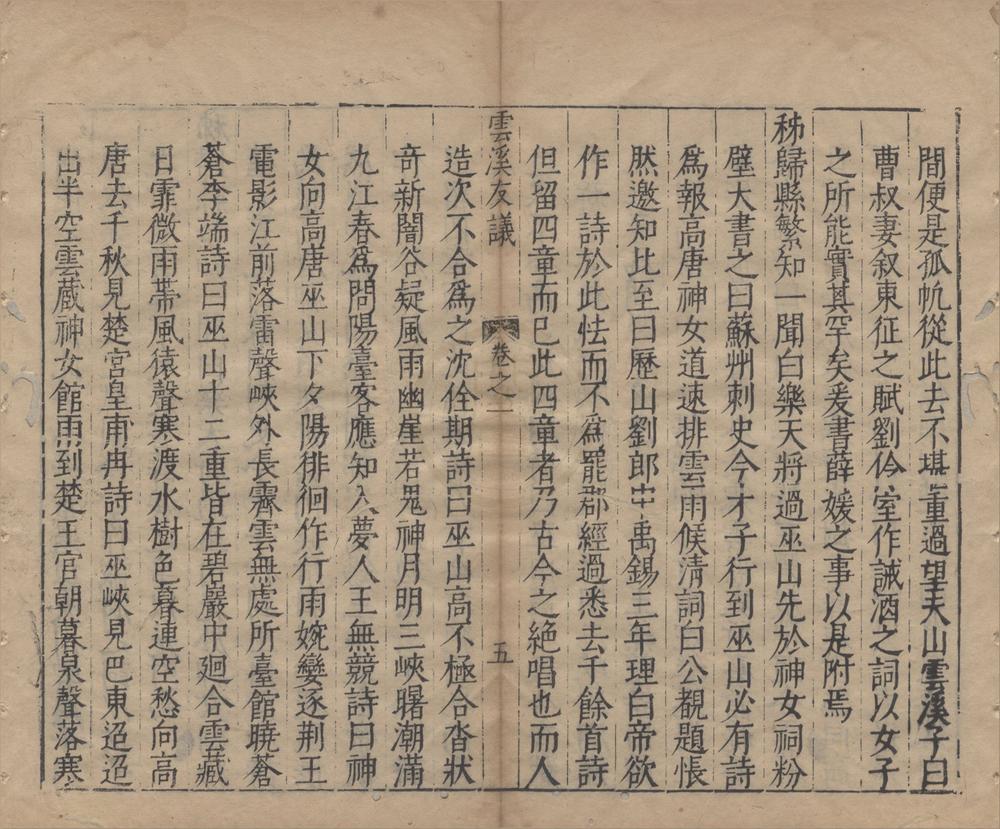 間便是孤帆從此去不堪重過望夫山雲溪子曰
曹叔妻叙東征之賦劉伶室作誡酒之詞以女子
之所能實其罕矣爰書薛媛之事以是附焉
秭歸縣繁知一聞白樂天將過巫山先於神女祠粉
壁大書之曰蘇州刺史今才子行到巫山必有詩
爲報高唐神女道速排雲雨候清詞白公覩題悵
然邀知比至曰歷山劉郎中禹錫三年理白帝欲
作一詩於此怯而不爲罷郡經過悉去千餘首詩
但留四章而已此四章者乃古今之絶唱也而人
雲溪友議 卷之一 五
造次不合爲之沈佺期詩曰巫山高不極合沓狀
竒新闇谷疑風雨幽崖若鬼神月明三峽曙潮滿
九江春爲問陽臺客應知入夢人王無競詩曰神
女向高唐巫山下夕陽徘徊作行雨婉孌逐荆王
電影江前落雷聲峽外長霽雲無處所臺館曉蒼
蒼李端詩曰巫山十二重皆在碧巖中廻合雲藏
日霏微雨帶風猿聲寒渡水樹色暮連空愁向高
唐去千秋見楚宮皇甫冉詩曰巫峽見巴東迢迢
出半空雲藏神女館雨到楚王宫朝暮泉聲落寒